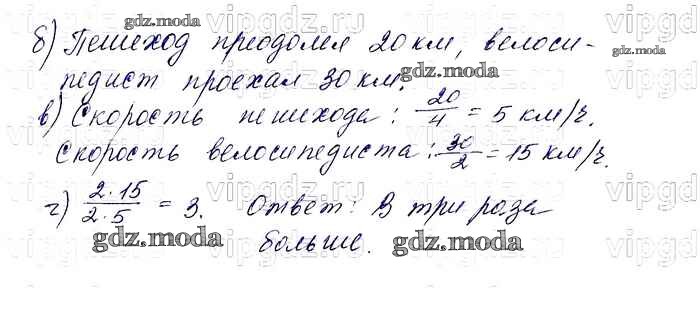 б) Пешеход преодолел 20 км, велоси-
педист проехал 30 км.
в) Скорость пешехода: 20/4 = 5 км/ч.
Скорость велосипедиста: 30/2 = 15 км/ч.
г) 2·15/2·5 = 3. Ответ: В три раза
больше.
gdz.moda
gdz.moda
gdz.moda
gdz.moda
gdz.moda
vipgdz.ru